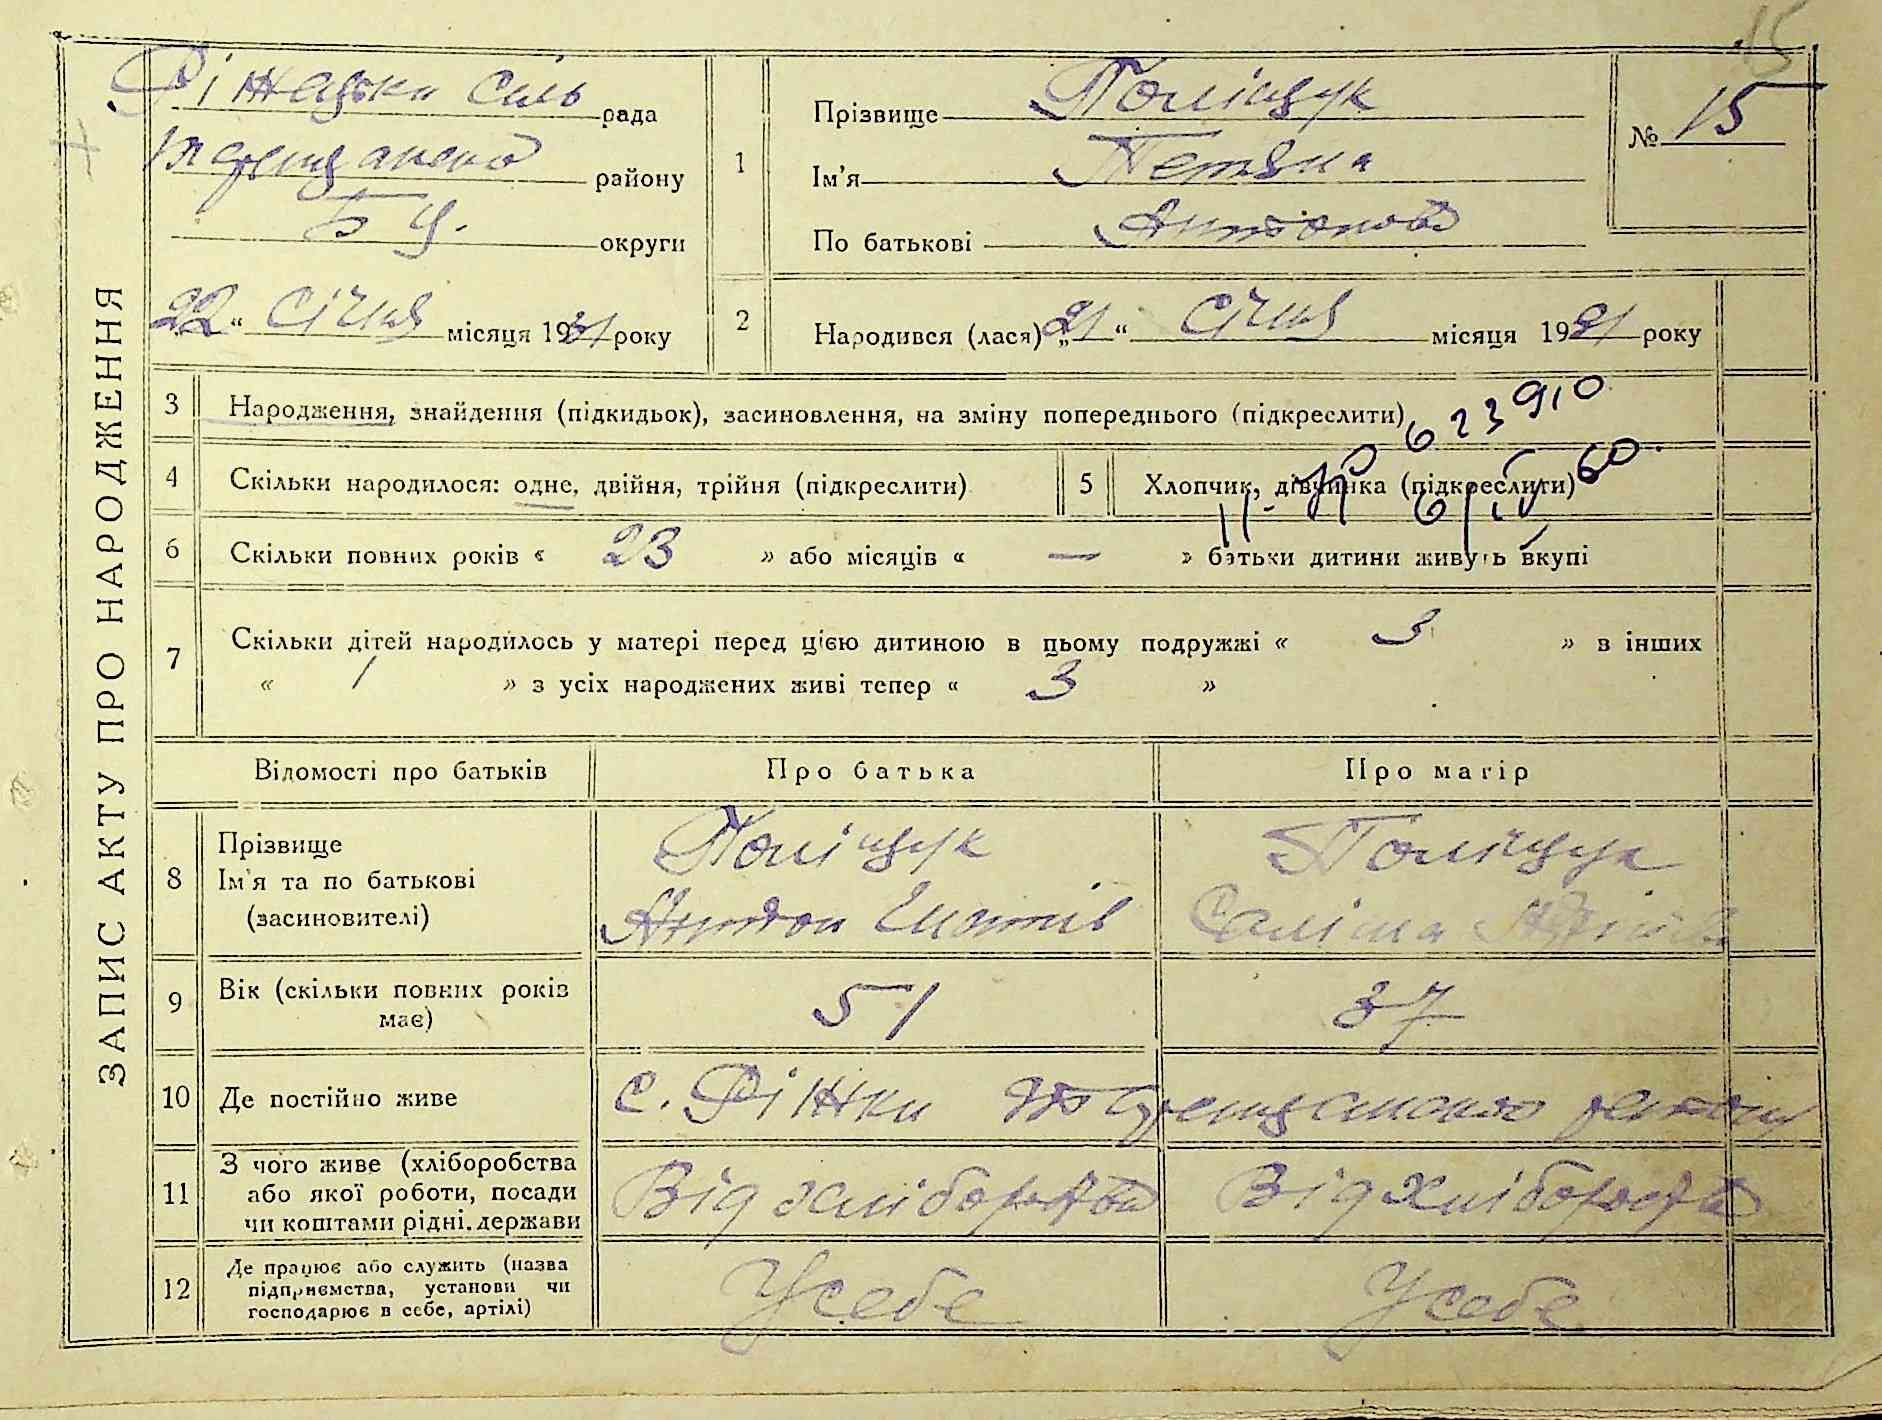 15
ЗАПИС АКТУ ПРО НАРОДЖЕННЯ
Ріжецька сіль рада
району
Б Ц. округи
22 “ Січня місяця 1931 року
1
Прізвище Поліщук
Ім'я Тетяна
По батькові Антонова
№ 15
2
Народився (лася) „21“ Січня місяця 1931 року
3 Народження, знайдення (підкидьок), засиновлення, на зміну попереднього (підкреслити)
623910
4 Скільки народилося: одне, двійня, трійня (підкреслити)
5 Хлопчик, дівчинка (підкреслити)
60.
6 Скільки повних років « 23 » або місяців « — » батьки дитини живуть вкупі
7 Скільки дітей народилось у матері перед цією дитиною в цьому подружжі « 3 » в інших
« / » з усіх народжених живі тепер « 3 »
Відомості про батьків Про батька Про матір
8 Прізвище
Ім'я та по батькові
(засиновителі)
Поліщук
Антон
Поліщук
9 Вік (скільки повних років
має)
51
37
10 Де постійно живе
с. Ріжки району
11 З чого живе (хліборобства
або якої роботи, посади
чи коштами рідні. держави
Від хліборобства
Від хліборобства
12 Де працює або служить (назва
підприємства, установи чи
господарює в себе, артілі)
У себе
У себе